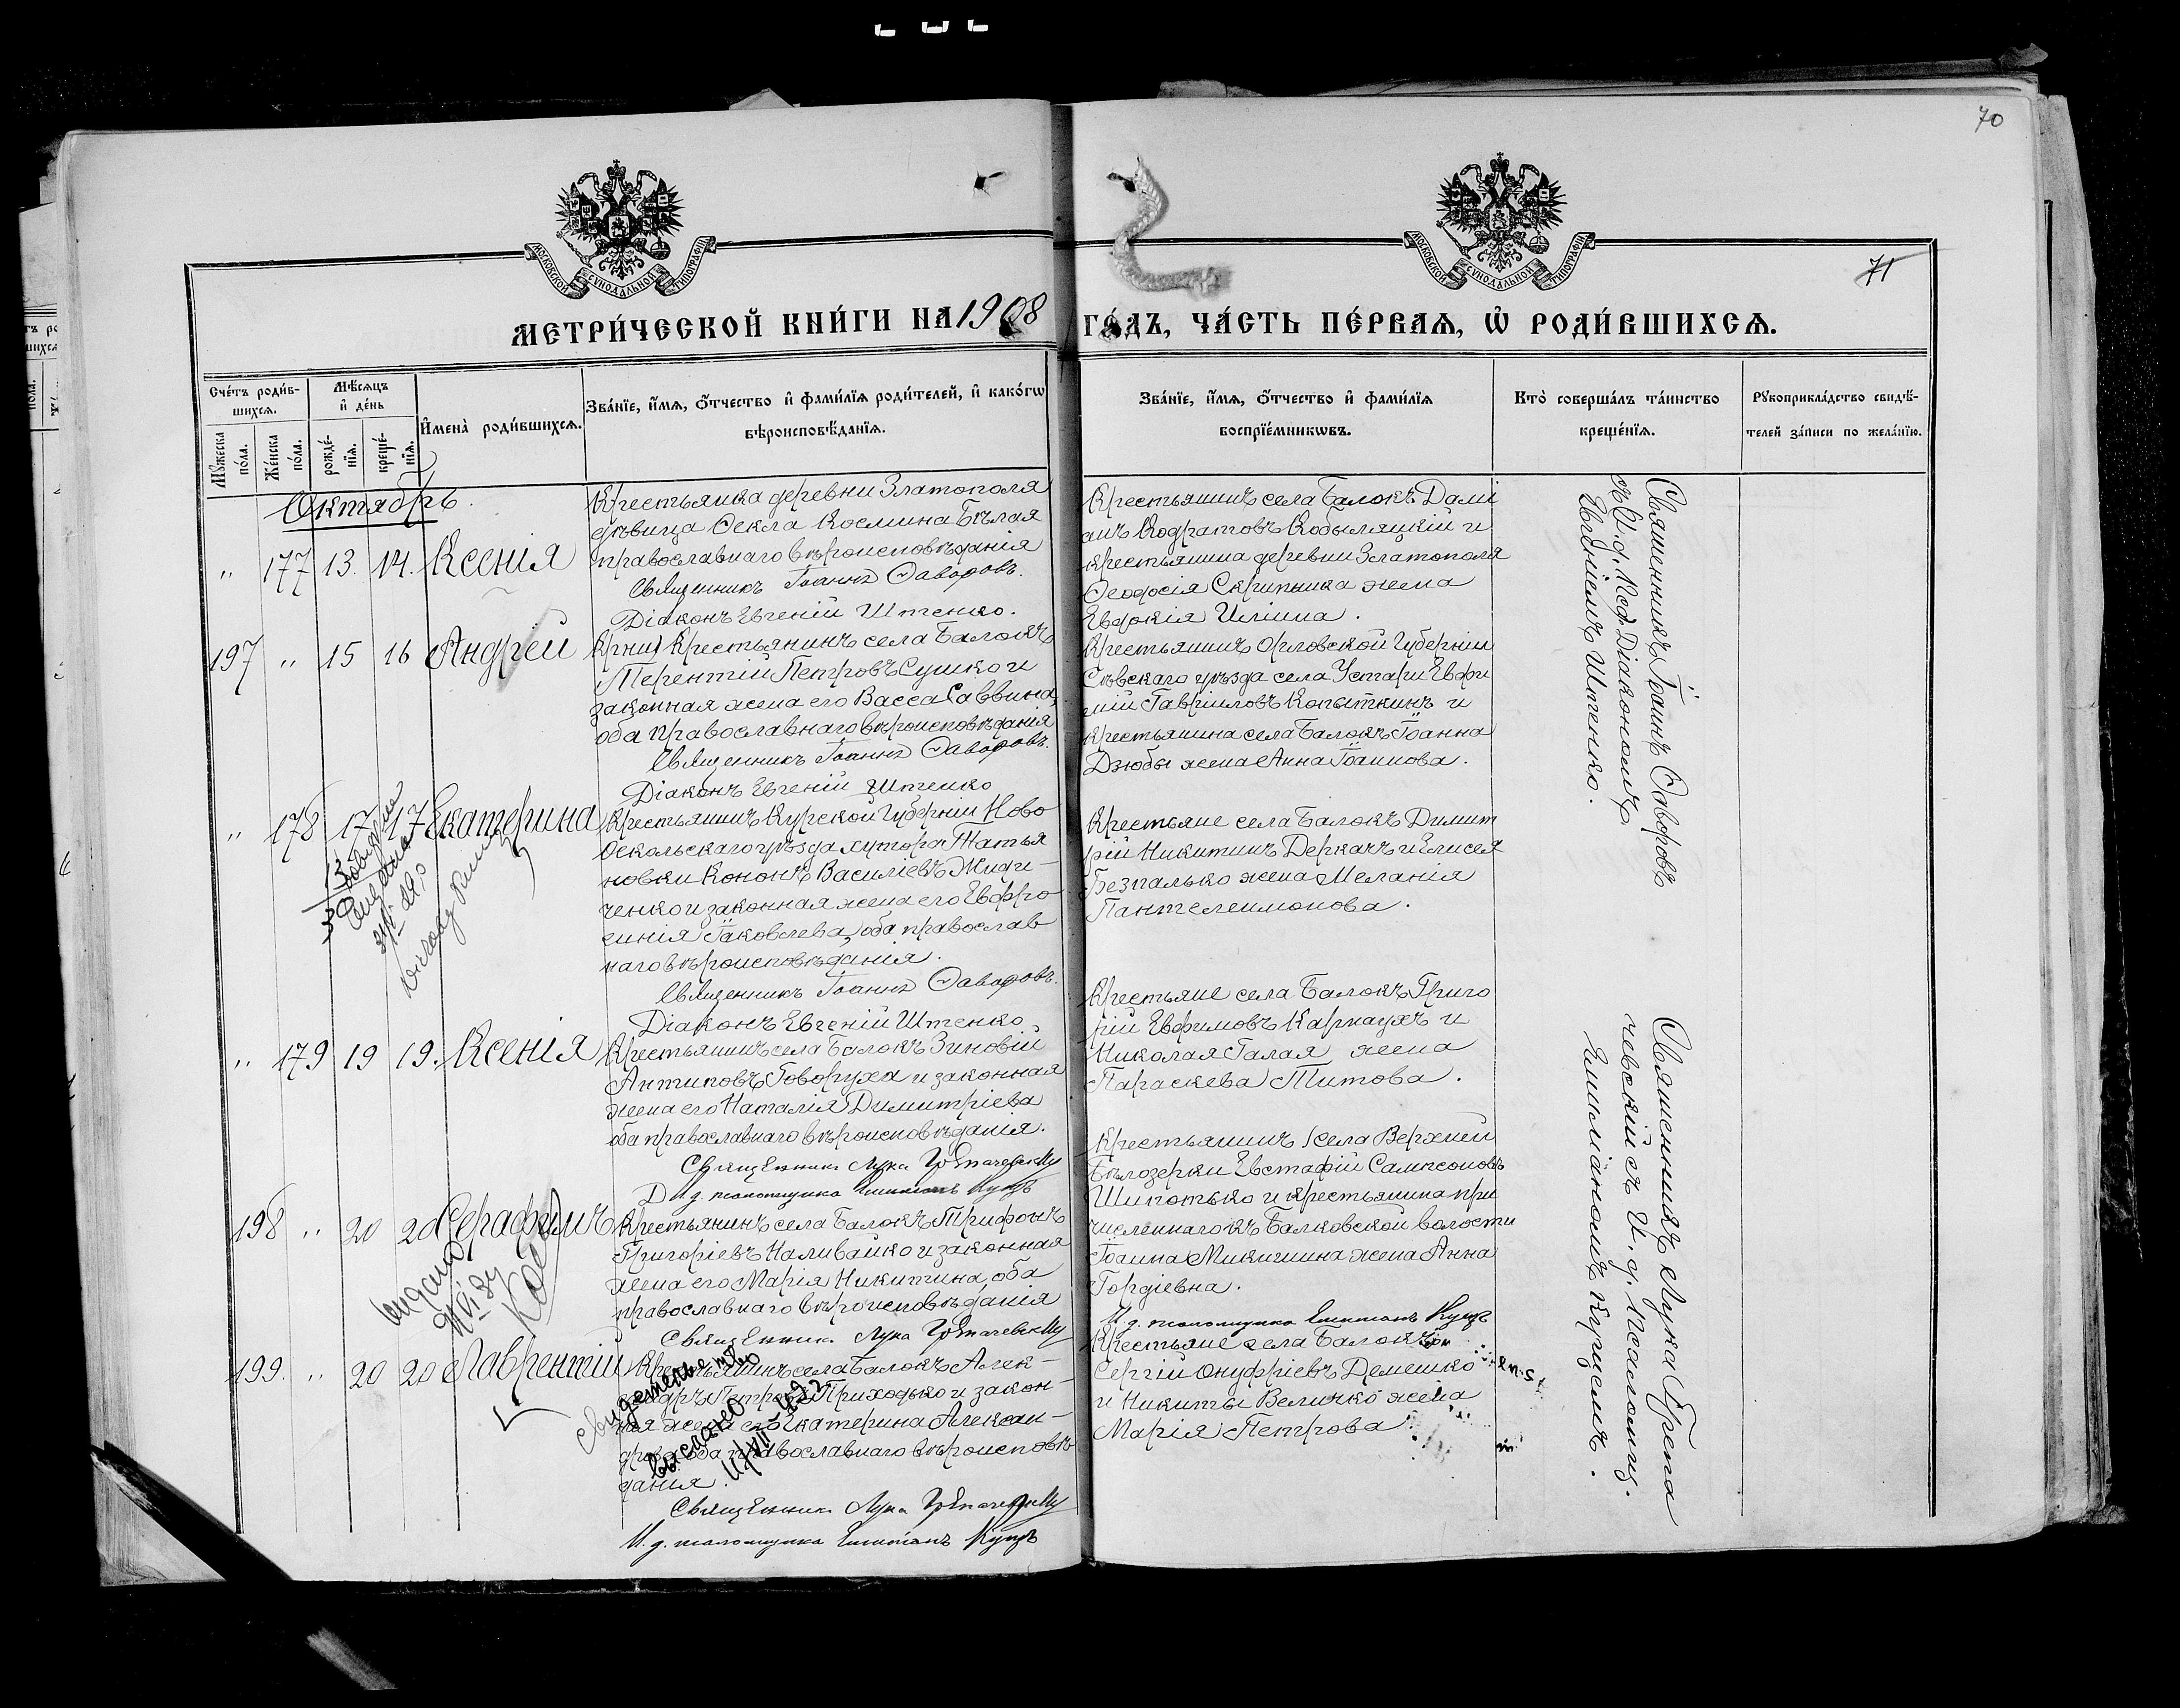 70
71
МОСКОВСКОЙ СѴНОДАЛЬНОЙ ТИПОГРАФІИ
МОСКОВСКОЙ СѴНОДАЛЬНОЙ ТИПОГРАФІИ
МЕТРИ́ЧЕСКОЙ КНИ́ГИ НА 1908 ГО́ДЪ, ЧА́СТЬ ПЕ́РВАѦ, Ѡ҆ РОДИ́ВШИХСѦ.
Сче́тъ роди́в-
шихсѧ.
Мꙋ́жеска по́ла.
Же́нска по́ла.
Мѣ́сѧцъ
и҆ де́нь
рожде́-
нїѧ.
креще́-
нїѧ.
И҆мена̀ роди́вшихсѧ.
Зва́нїе, и҆́мѧ, ѻ҆́тчество и҆ фамѝлїѧ роди́телей, и҆ како́гѡ
вѣроисповѣ́данїѧ.
Зва́нїе, и҆́мѧ, ѻ҆́тчество и҆ фамѝлїѧ
воспрїе́мникѡвъ.
Кто̀ соверша́лъ та́инство
креще́нїѧ.
Рꙋкоприкла́дство свидѣ́-
телей за́писи по жела́нїю.
Октябрь.
" 177 13. 14. Ксенія
Крестьянка деревни Златополя
дѣвица Ѳекла Космина Бѣлая
православнаго вѣроисповѣданія
Священникъ Іоаннъ Ѳаворовъ.
Діаконъ Евгеній Штенко.
Крестьянинъ села Балокъ Домі
анъ Кодратовъ Кобыляцкій и
крестьянина деревни Златополя
Ѳеодосія Скрипника жена
Евдокія Иліина.
197 " 15 16 Андрей
Крестьянинъ села Балокъ
Терентій Петровъ Сушко и
законная жена его Васса Саввина,
оба православнаго вѣроисповѣданія
Священникъ Іоаннъ Ѳаворовъ.
Діаконъ Евгеній Штенко
Крестьянинъ Орловской Губерніи
Сѣвскаго уѣзда села Устари Евфи
мій Гавріиловъ Копыткинъ и
крестьянина села Балокъ Іоанна
Дзюбы жена Анна Іоаннова.
" 178 17 17 Екатерина
Крестьянинъ Курской Губерніи Ново
Оскольскаго уѣзда хутора Татья
новки Кононъ Василіевъ Жиди-
ченко и законная жена его Евфро
синія Іаковлева, оба православ
наго вѣроисповѣданія.
Священникъ Іоаннъ Ѳаворовъ.
Діаконъ Евгеній Штенко
Крестьяне села Балокъ Димит
рій Никитинъ Деркачъ и Елисея
Безпалько жена Меланія
Пантелеимонова.
" 179 19 19. Ксенія
Крестьянинъ села Балокъ Зиновій
Антиповъ Говоруха и законная
жена его Наталія Димитріева
оба православнаго вѣроисповѣданія.
Священникъ Лука
И. д. псаломщика Емиліанъ Куцъ
Крестьяне села Балокъ Григо
рій Евфимовъ Карнаухъ и
Николая Галая жена
Параскева Титова.
198 " 20 20 Серафимъ
Крестьянинъ села Балокъ Трифонъ
Григоріевъ Наливайко и законная
жена его Марія Никитина, оба
православнаго вѣроисповѣданія
Священникъ Лука
Крестьянинъ села Верхней
Бѣлозерки Евстафій Сампсоновъ
Шипотько и крестьянина при
численнаго къ Балковской волости
Іоанна Микишина жена Анна
Гордіевна.
И. д. псаломщика Емиліанъ Куцъ
199. " 20 20 Лаврентій
Крестьянинъ села Балокъ Алек-
сандръ Петровъ Приходько и закон-
ная жена его Екатерина Алексан-
дрова оба православнаго вѣроисповѣ
данія.
Священникъ Лука
И. д. псаломщика Емиліанъ Куцъ
Крестьяне села Балокъ
Сергій Онуфріевъ Демешко
и Никиты Величко жена
Марія Петрова.
Священникъ Іоаннъ Ѳаворовъ
съ И. д. Псал. Діакономъ
Евгеніемъ Штенко.
Священникъ Лука
съ И. д. псаломщ.
Емиліаномъ Куцемъ.